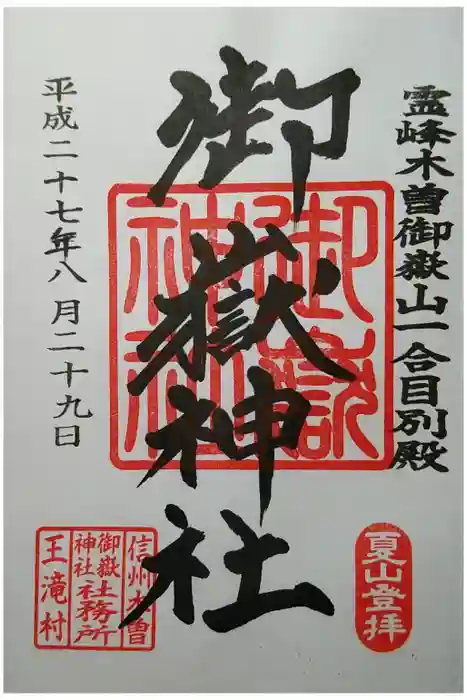 霊峰木曽御嶽山一合目別殿
夏山登拝
御嶽神社
御嶽
神社
平成二十七年八月二十九日
信州木曽
御嶽神社社務所
王滝村